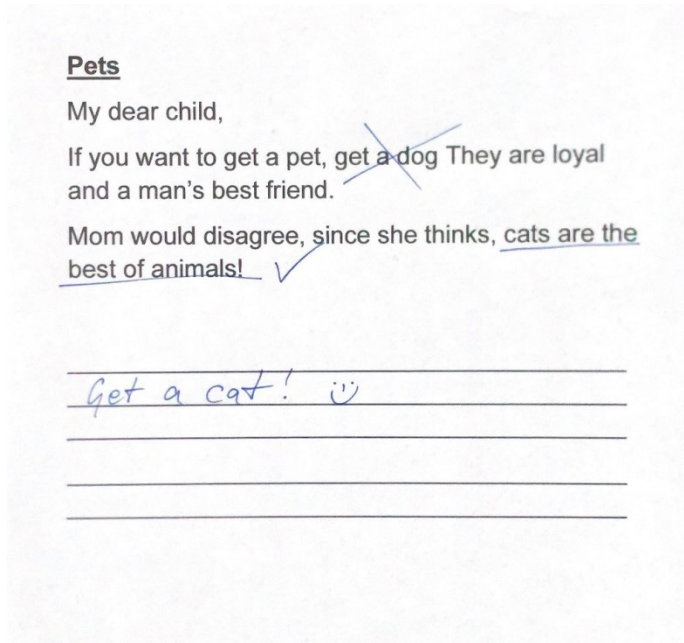 Pets
My dear child,
If you want to get a pet, get a dog They are loyal
and a man's best friend.
Mom would disagree, since she thinks, cats are the
best of animals!
Get a cat!